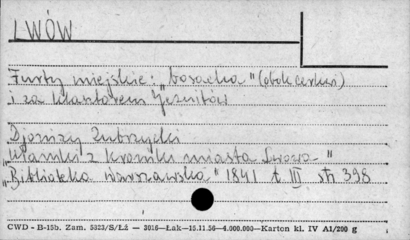 LWÓW
Furty miejskie: "bosacka" (obok cerkwi)
i za klasztorem Jezuitów
Djonizy Zubrzycki
"Ułamki z kroniki miasta Lwowa"
"Biblioteka warszawska" 1841 t. III str 398
CWD - B-15b. Zam. 5823/S/Łż — 3016—Łak—15.11.56—4.000.000—Karton kl. IV A1/200 g